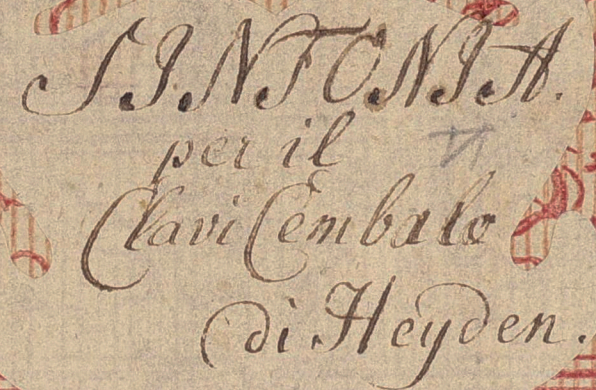 SINFONIA.
per il
Clavi Cembalo
di Heyden.